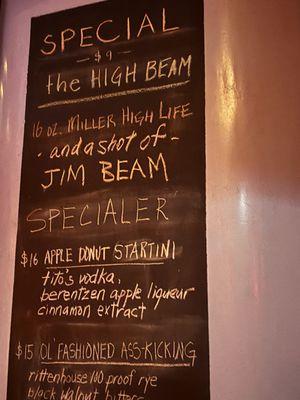 SPECIAL
- $9 -
the HIGH BEAM
16 oz. MILLER HIGH LIFE
- and a shot of -
JIM BEAM
SPECIALER
$16 APPLE DONUT STARTINI
tito's vodka,
berentzen apple liqueur
cinnamon extract
$15 OL' FASHIONED ASS-KICKING
rittenhouse 100 proof rye
black walnut bitters